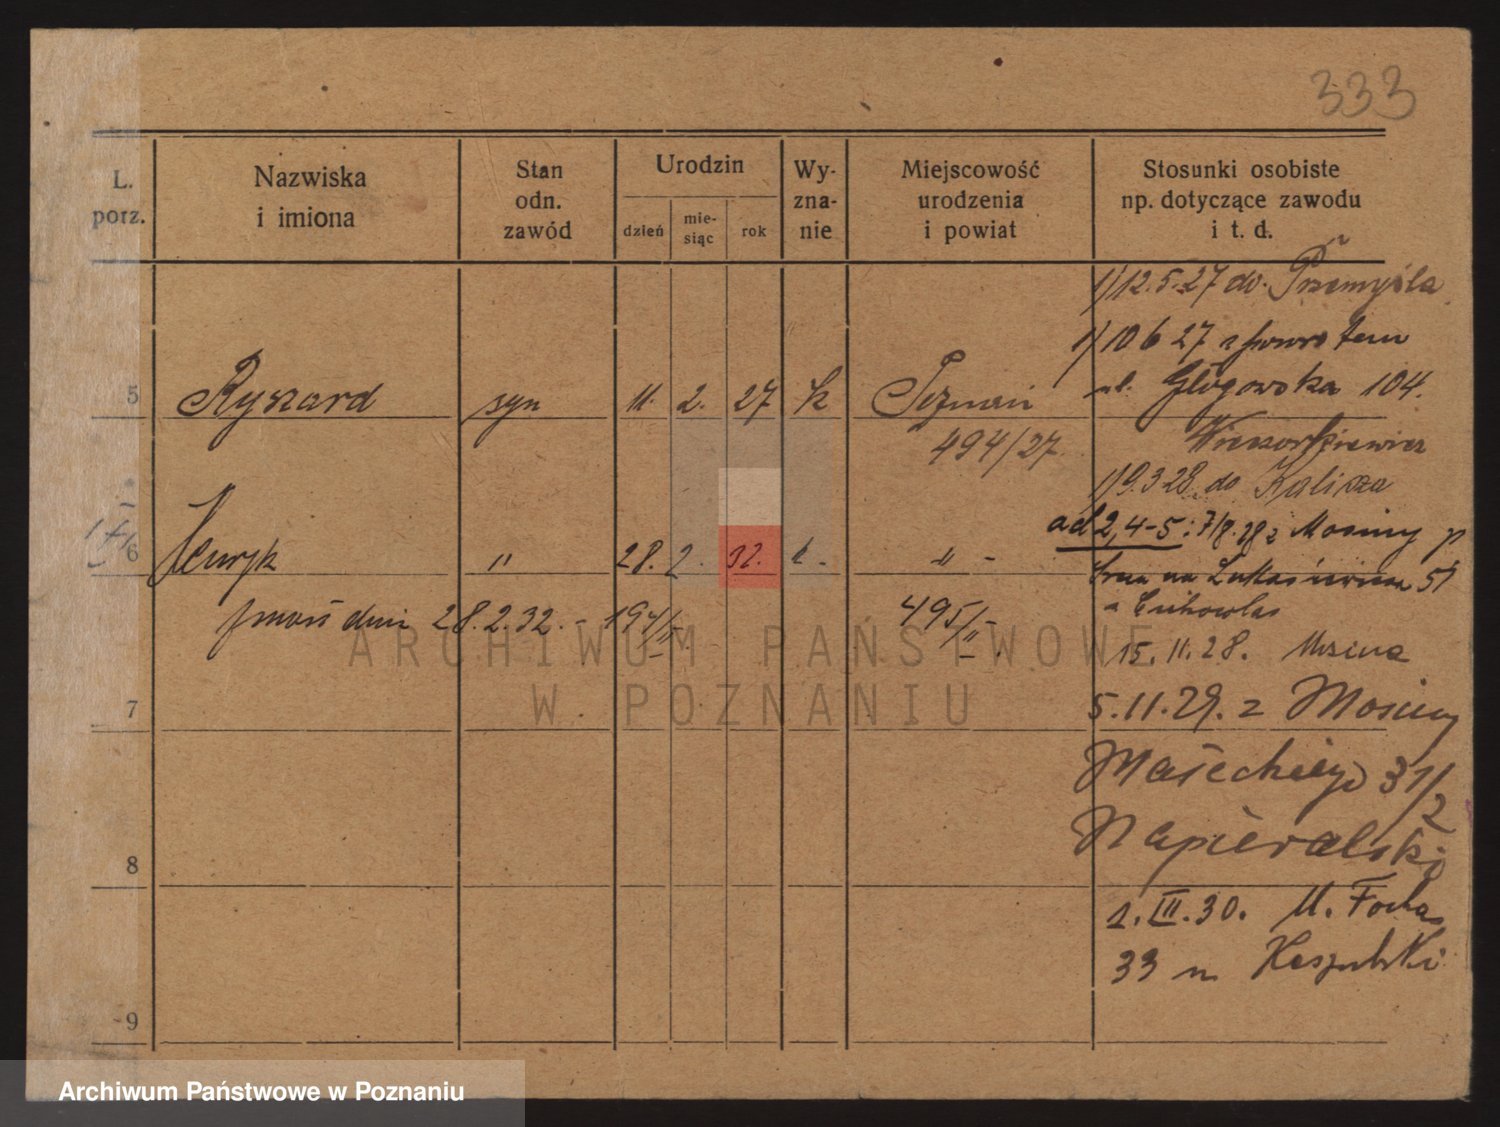 333
L. porz.
Nazwiska i imiona
Stan odn. zawód
Urodzin
dzień
mie- siąc
rok
Wy- zna- nie
Miejscowość urodzenia i powiat
Stosunki osobiste np. dotyczące zawodu i t. d.
1) 12.5.27 do Przemyśla
1) 10 6 27 z powrotem
ul. Głogowska 104.
5 Ryszard syn 11. 2. 27 k Poznań
494/27
Wieczorkiewicz
1) 9.3 28 do Kalisza
ad 2, 4-5: 7/8.28 z Mosiny p
6 Henryk " 28. 2. 32. k. " -
Łukasiewicza 51
zmarł dnia 28.2.32. - 194/II - 495/II -
15.11.28. Mosina
7
5.11.29. z Mosiny
Małeckiego 31/2
Napieralski
8
1.III.30. M. Focha
33 m Kaszubski
9
ARCHIWUM PAŃSTWOWE
W POZNANIU
Archiwum Państwowe w Poznaniu